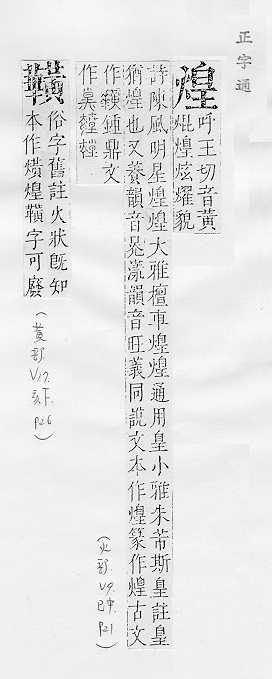 正字通
煌
呼王切音黃
焜煌炫耀貌
詩陳風明星煌煌大雅檀車煌煌通用皇小雅朱芾斯皇註皇
猶煌也又養韻音晃漾韻音旺義同說文本作煌篆作煌古文
作 鍾鼎文
作
(火部. V7. 巳中. P21)
俗字舊註火狀旣知
本作熿煌 字可廢
(黃部. V17. 亥下. P26)